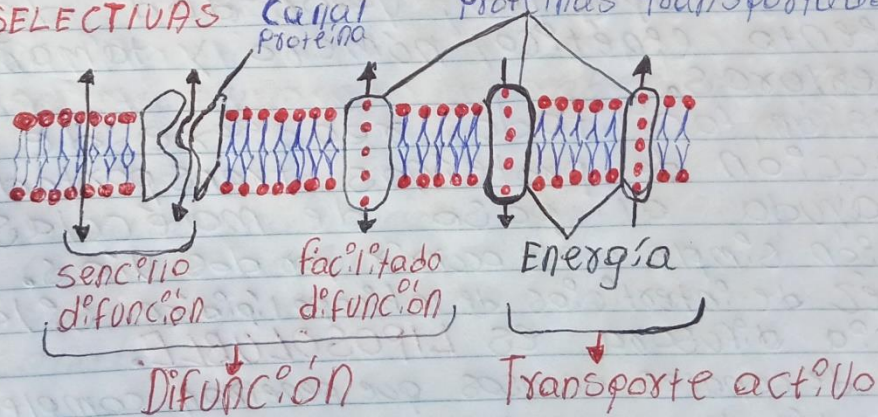 SELECTIVAS Canal
proteína
sencillo
difunción
facilitado
difunción
Energía
Difunción
Transporte activo